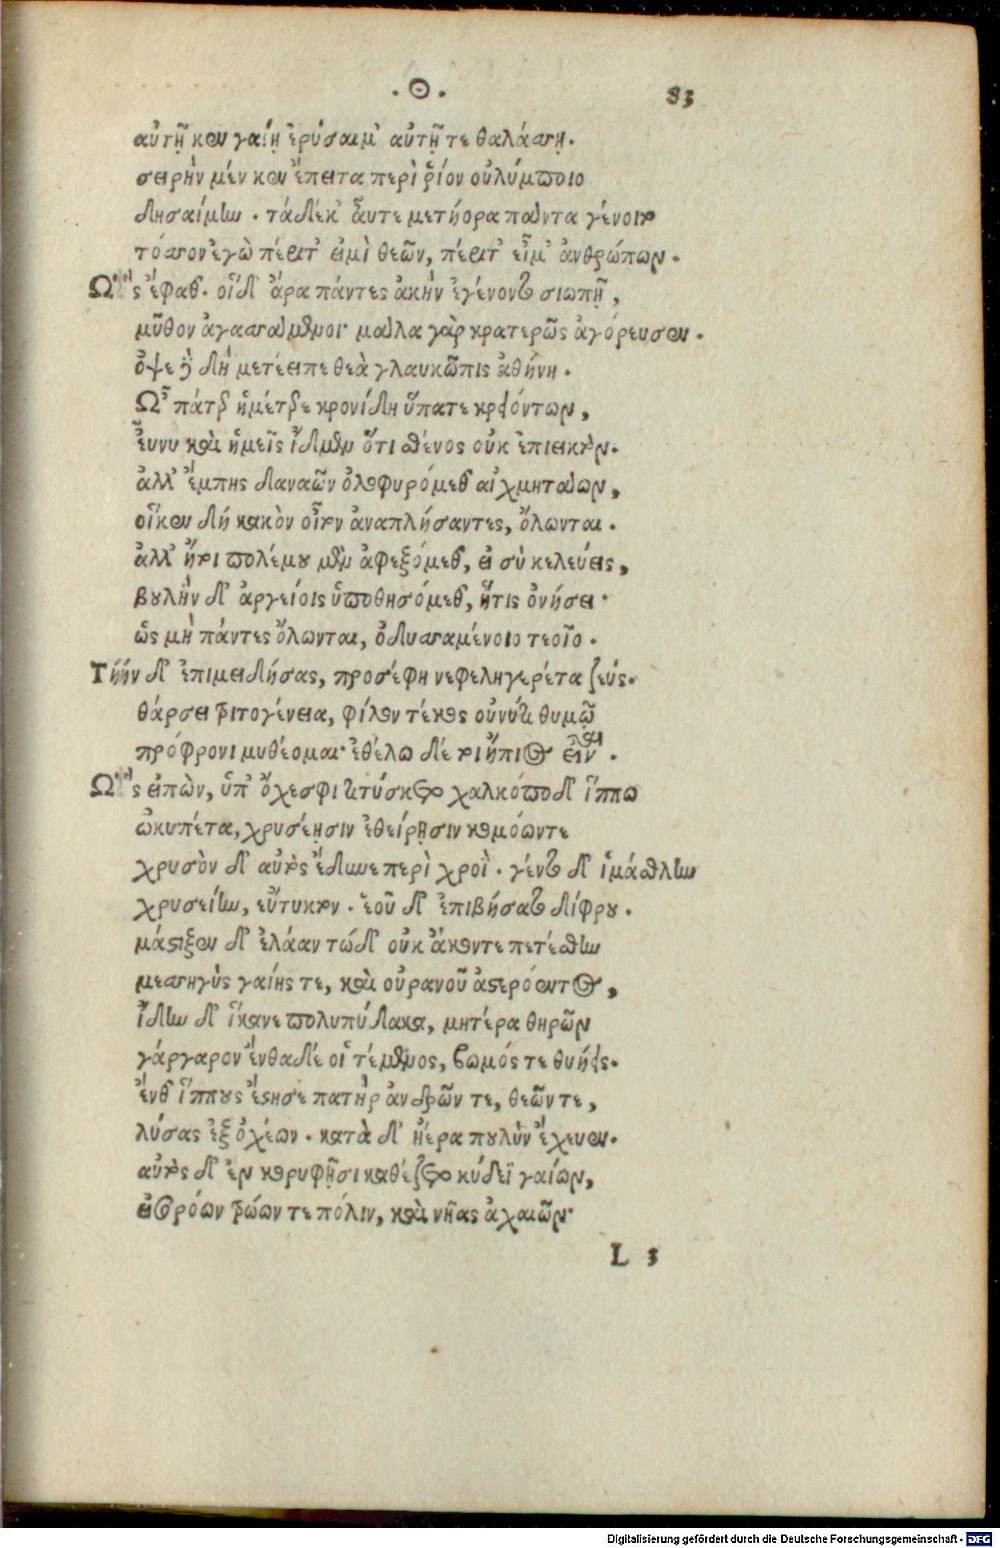 ·Θ· 83
αὐτῇ κεν γαίῃ ἐρύσαιμ᾽ αὐτῇ τε θαλάσσῃ.
σειρὴν μέν κεν ἔπειτα περὶ ῥίον οὐλύμποιο
δησαίμην. τὰ δέ κ᾽ αὖτε μετήορα πάντα γένοιτο
τόσσον ἐγὼ πέρι τ᾽ εἰμὶ θεῶν, πέρι τ᾽ εἴμ᾽ ἀνθρώπων.
Ὣς ἔφαθ᾽. οἱ δ᾽ ἄρα πάντες ἀκὴν ἐγένοντο σιωπῇ,
μῦθον ἀγασσάμενοι· μάλα γὰρ κρατερῶς ἀγόρευσεν.
ὀψὲ δὲ δὴ μετέειπε θεὰ γλαυκῶπις ἀθήνη.
Ὦ πάτερ ἡμέτερε κρονίδη ὕπατε κρειόντων,
εὖ νυ καὶ ἡμεῖς ἴδμεν ὅτι σθένος οὐκ ἐπιεικτόν.
ἀλλ᾽ ἔμπης δαναῶν ὀλοφυρόμεθ᾽ αἰχμητάων,
οἵ κεν δὴ κακὸν οἶτον ἀναπλήσαντες, ὄλωνται.
ἀλλ᾽ ἤτοι πολέμου μὲν ἀφεξόμεθ᾽, εἰ σὺ κελεύεις,
βουλὴν δ᾽ ἀργείοις ὑποθησόμεθ᾽, ἥτις ὀνήσει·
ὡς μὴ πάντες ὄλωνται, ὀδυσσαμένοιο τεοῖο.
Τὴν δ᾽ ἐπιμειδήσας, προσέφη νεφεληγερέτα ζεύς.
θάρσει τριτογένεια, φίλον τέκος οὐ νύ τι θυμῷ
πρόφρονι μυθέομαι· ἐθέλω δέ τοι ἤπιος εἶναι.
Ὣς εἰπὼν, ὑπ᾽ ὄχεσφι τιτύσκετο χαλκόποδ᾽ ἵππω
ὠκυπέτα, χρυσέῃσιν ἐθείρῃσιν κομόωντε
χρυσὸν δ᾽ αὐτὸς ἔδυνε περὶ χροΐ. γέντο δ᾽ ἱμάσθλην
χρυσείην, εὔτυκτον. ἑοῦ δ᾽ ἐπιβήσατο δίφρου.
μάστιξεν δ᾽ ἐλάαν τὼ δ᾽ οὐκ ἄκοντε πετέσθην
μεσσηγὺς γαίης τε, καὶ οὐρανοῦ ἀστερόεντος,
ἴδην δ᾽ ἵκανε πολυπίδακα, μητέρα θηρῶν
γάργαρον ἔνθα δέ οἱ τέμενος, βωμός τε θυήεις.
ἔνθ᾽ ἵππους ἔστησε πατὴρ ἀνδρῶν τε, θεῶν τε,
λύσας ἐξ ὀχέων. κατὰ δ᾽ ἠέρα πουλὺν ἔχευεν.
αὐτὸς δ᾽ ἐν κορυφῇσι καθέζετο κύδεϊ γαίων,
εἰσορόων τρώων τε πόλιν, καὶ νῆας ἀχαιῶν·
L 3
Digitalisierung gefördert durch die Deutsche Forschungsgemeinschaft - DFG